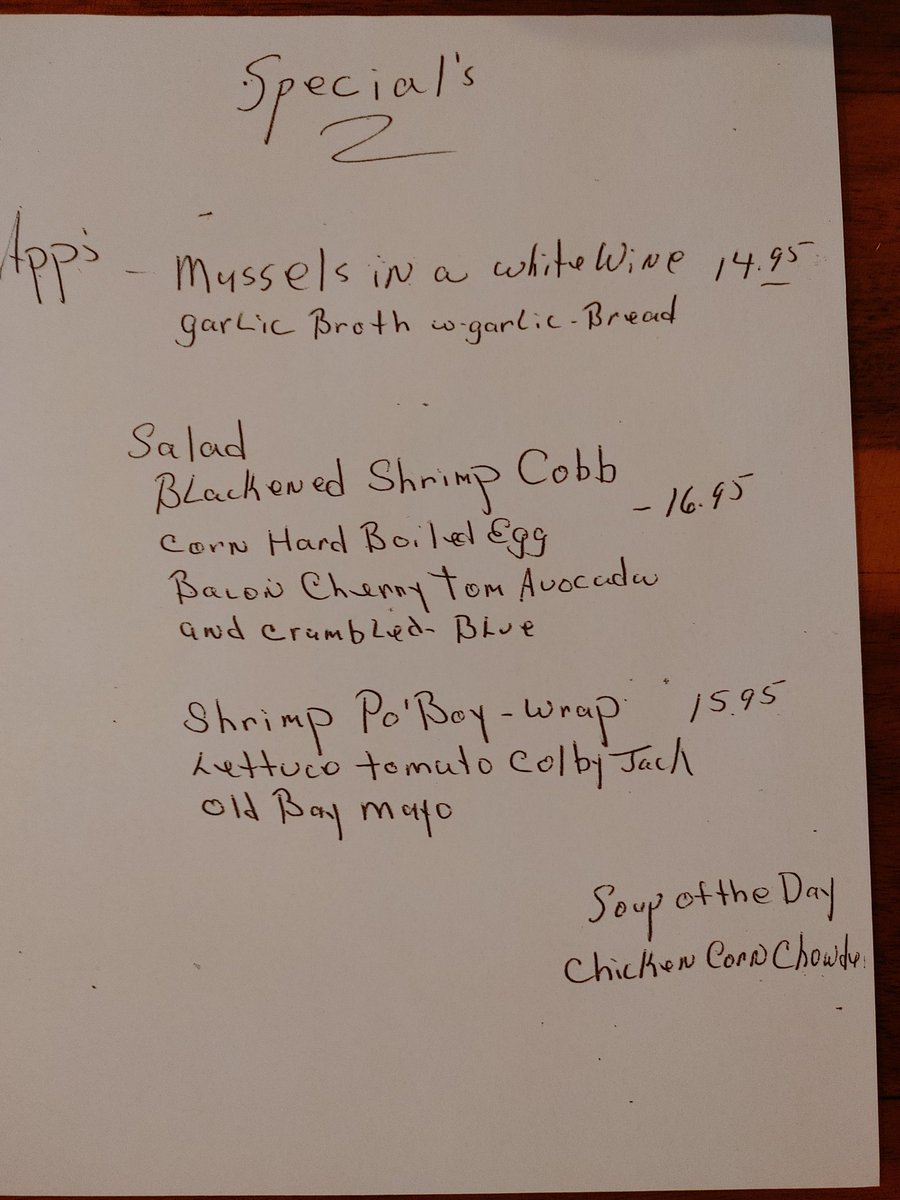 Special's
App's - Mussels in a white wine 14.95
garlic Broth w-garlic-Bread
Salad
Blackened Shrimp Cobb
- 16.95
Corn Hard Boiled Egg
Bacon Cherry Tom Avocado
and crumbled- Blue
Shrimp Po'Boy-wrap 15.95
Lettuce tomato Colby Jack
old Bay mayo
Soup of the Day
Chicken Corn Chowde